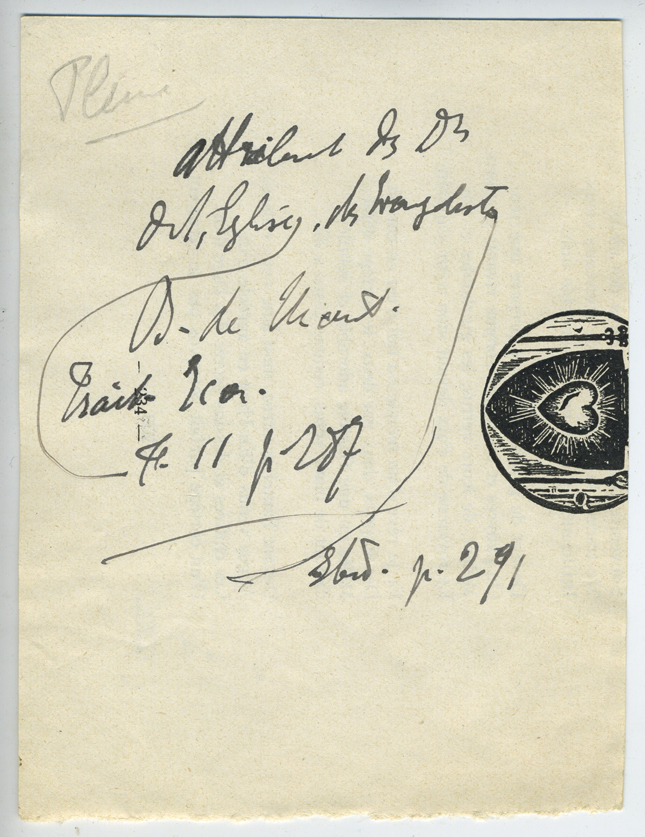 Plume
attribut ds Drs
de l'Eglise, des Evangelistes
B. de Mont.
Traité Icon.
t. II p 287
Ibid. p. 291